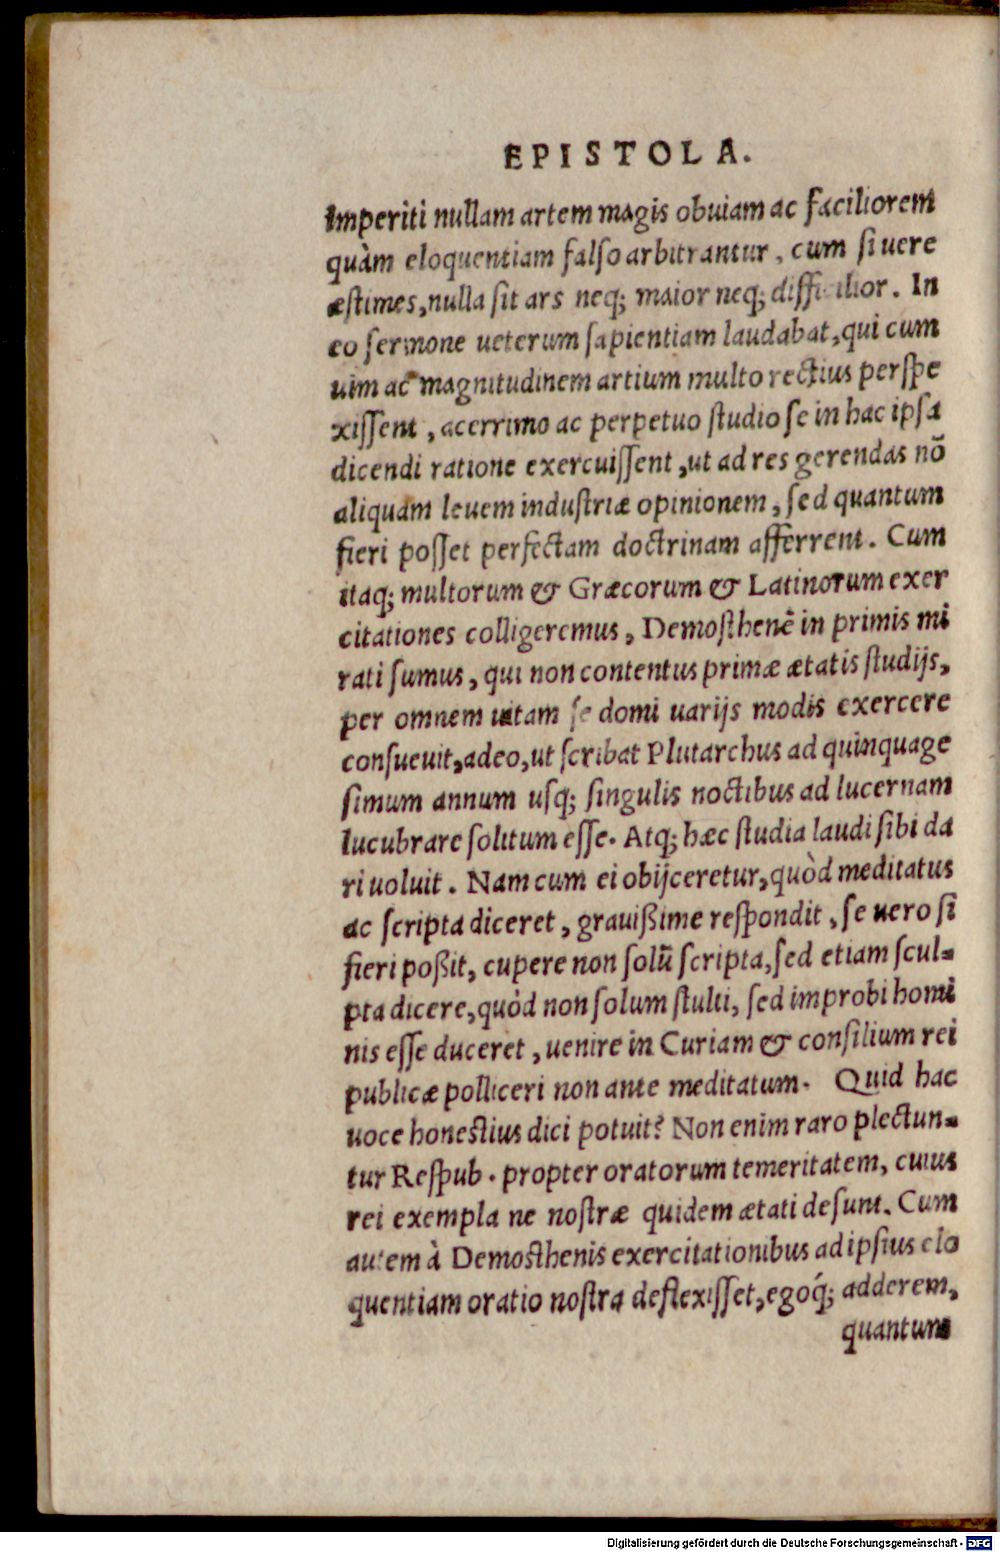 EPISTOLA.
Imperiti nullam artem magis obuiam ac faciliorem
quàm eloquentiam falso arbitrantur, cum si uere
æstimes, nulla sit ars neq; maior neq; difficilior. In
eo sermone ueterum sapientiam laudabat, qui cum
uim ac magnitudinem artium multo rectius perspe
xissent, acerrimo ac perpetuo studio se in hac ipsa
dicendi ratione exercuissent, ut ad res gerendas nō
aliquam leuem industriæ opinionem, sed quantum
fieri posset perfectam doctrinam afferrent. Cum
itaq; multorum & Græcorum & Latinorum exer
citationes colligeremus, Demosthenē in primis mi
rati sumus, qui non contentus primæ ætatis studijs,
per omnem uitam se domi uarijs modis exercere
consueuit, adeo, ut scribat Plutarchus ad quinquage
simum annum usq; singulis noctibus ad lucernam
lucubrare solitum esse. Atq; hæc studia laudi sibi da
ri uoluit. Nam cum ei obijceretur, quòd meditatus
ac scripta diceret, grauißime respondit, se uero si
fieri poßit, cupere non solū scripta, sed etiam scul-
pta dicere, quòd non solum stulti, sed improbi homi
nis esse duceret, uenire in Curiam & consilium rei
publicæ polliceri non ante meditatum. Quid hac
uoce honestius dici potuit? Non enim raro plectun-
tur Respub. propter oratorum temeritatem, cuius
rei exempla ne nostræ quidem ætati desunt. Cum
autem à Demosthenis exercitationibus ad ipsius elo
quentiam oratio nostra deflexisset, egoq́; adderem,
quantum
Digitalisierung gefördert durch die Deutsche Forschungsgemeinschaft - DFG